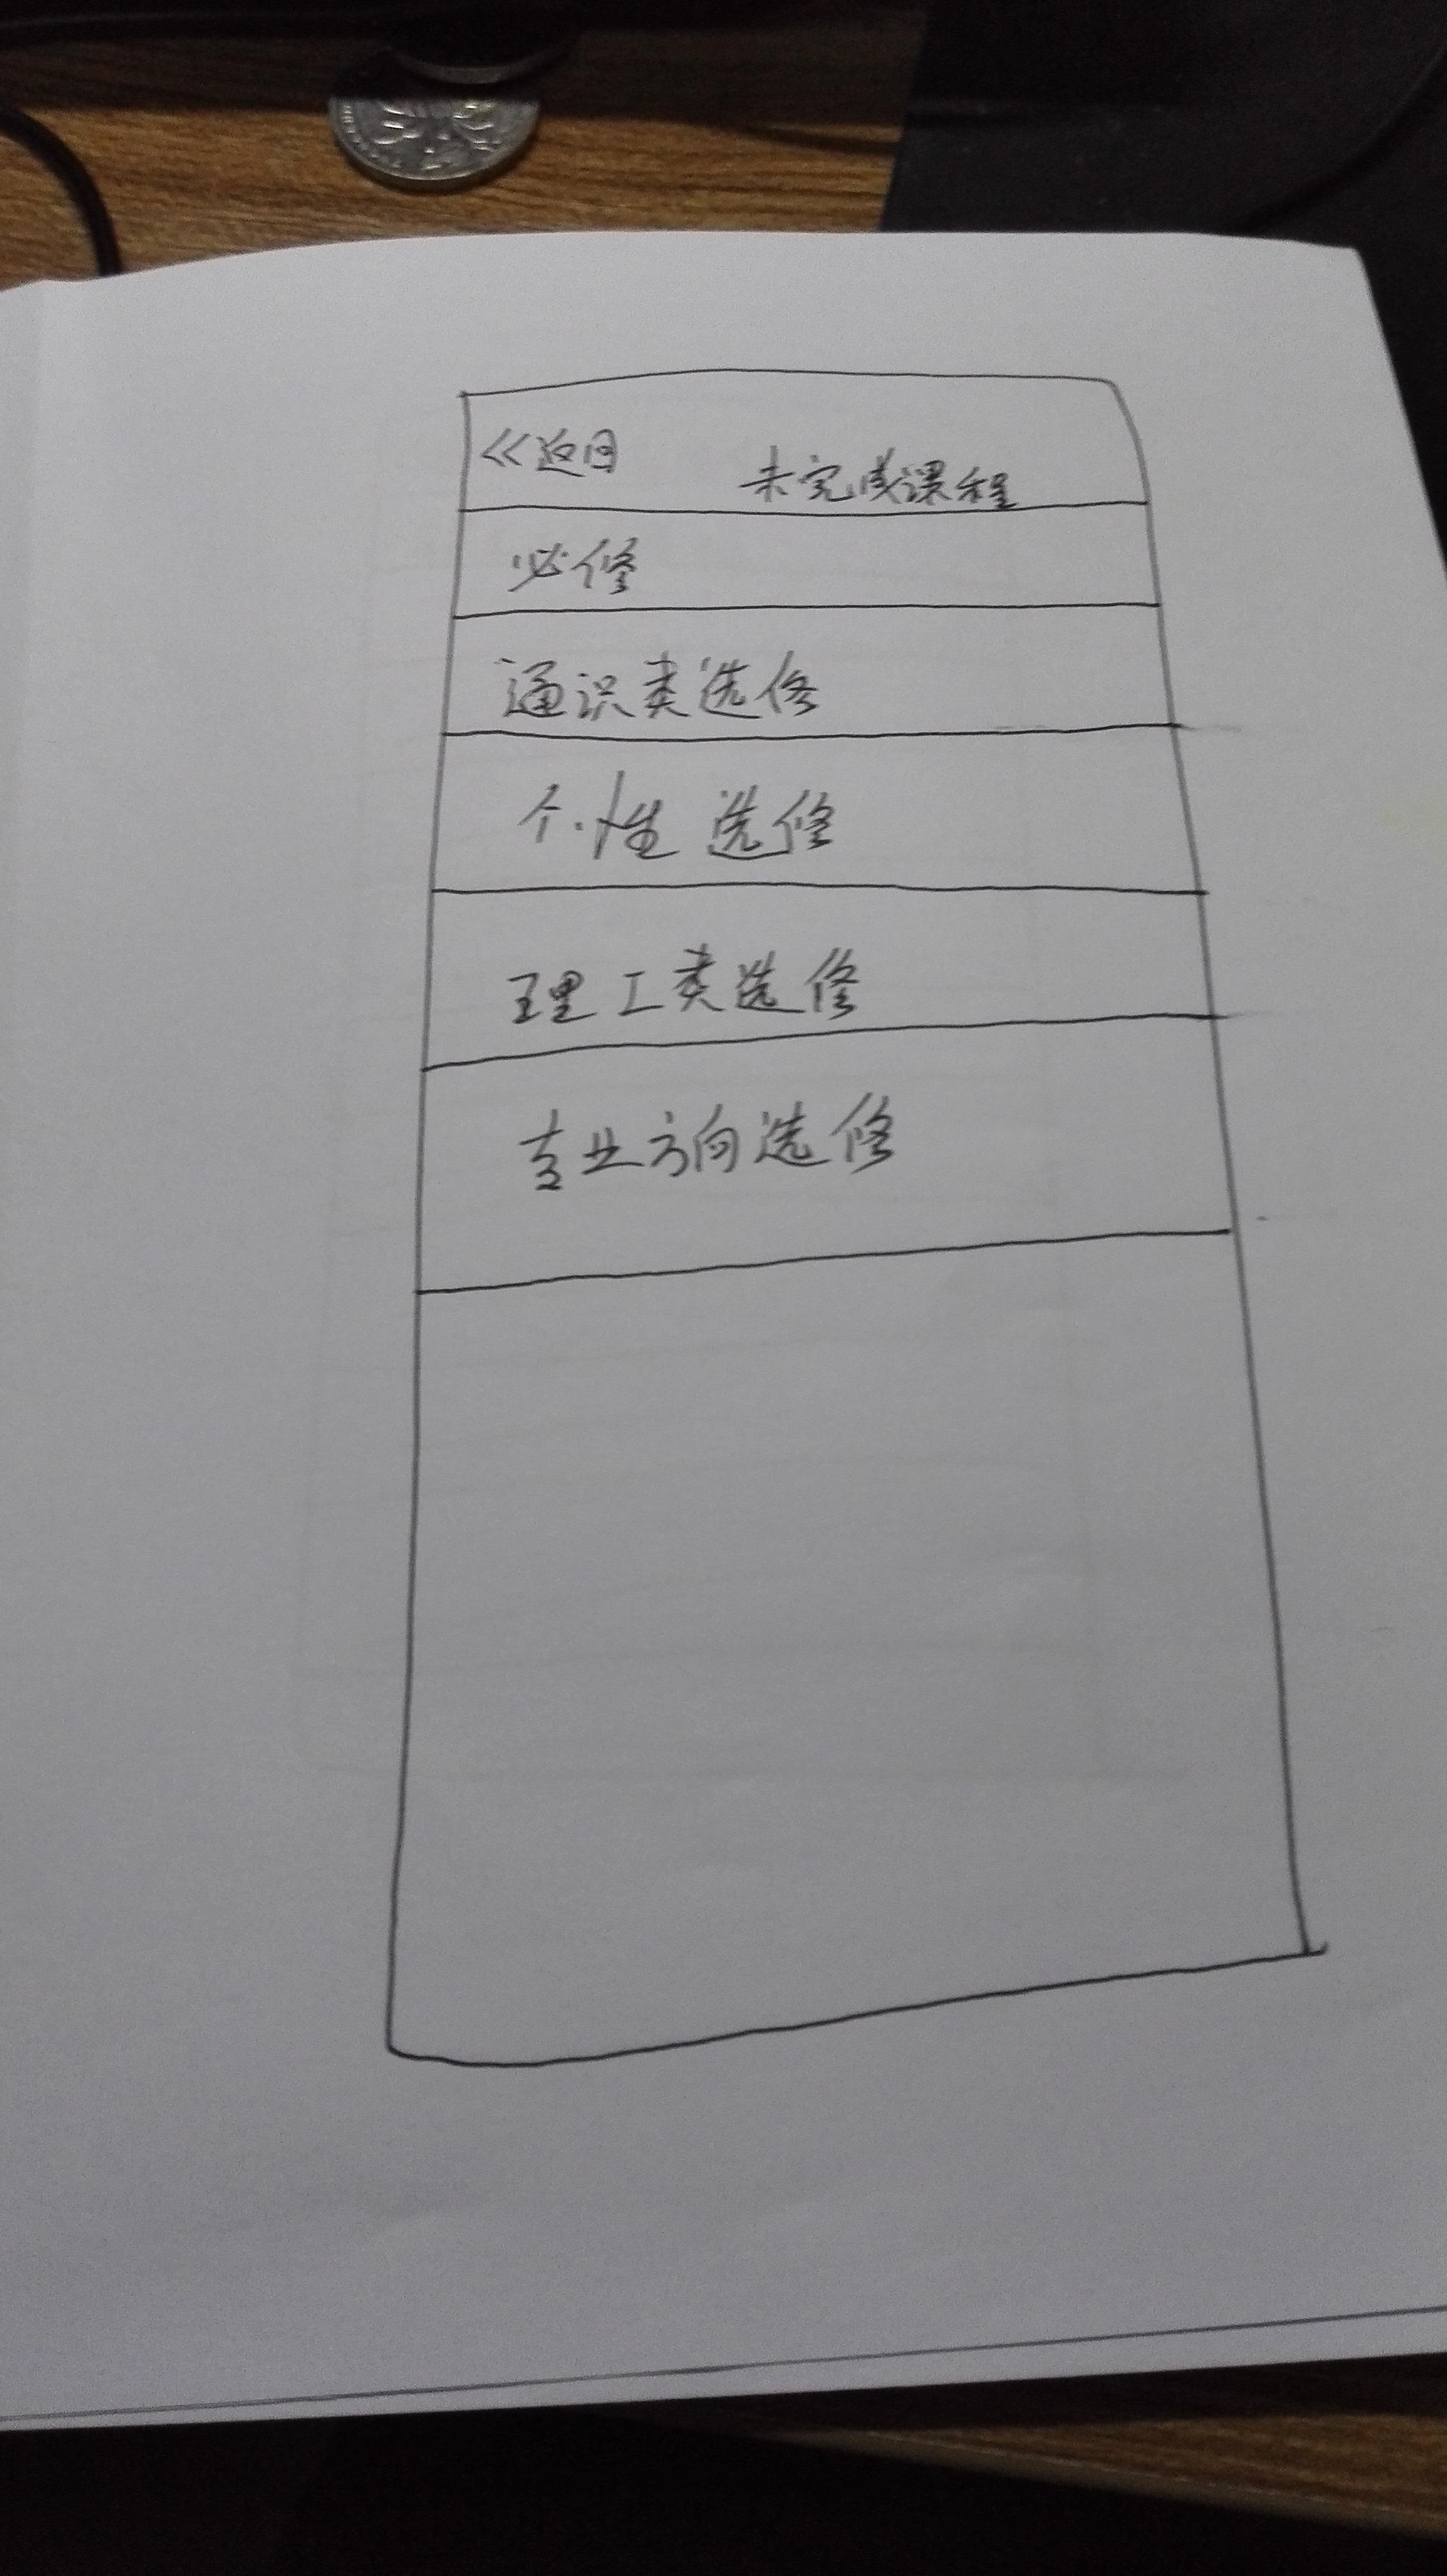 <<返回 未完成课程
必修
通识类选修
个性选修
理工类选修
专业方向选修